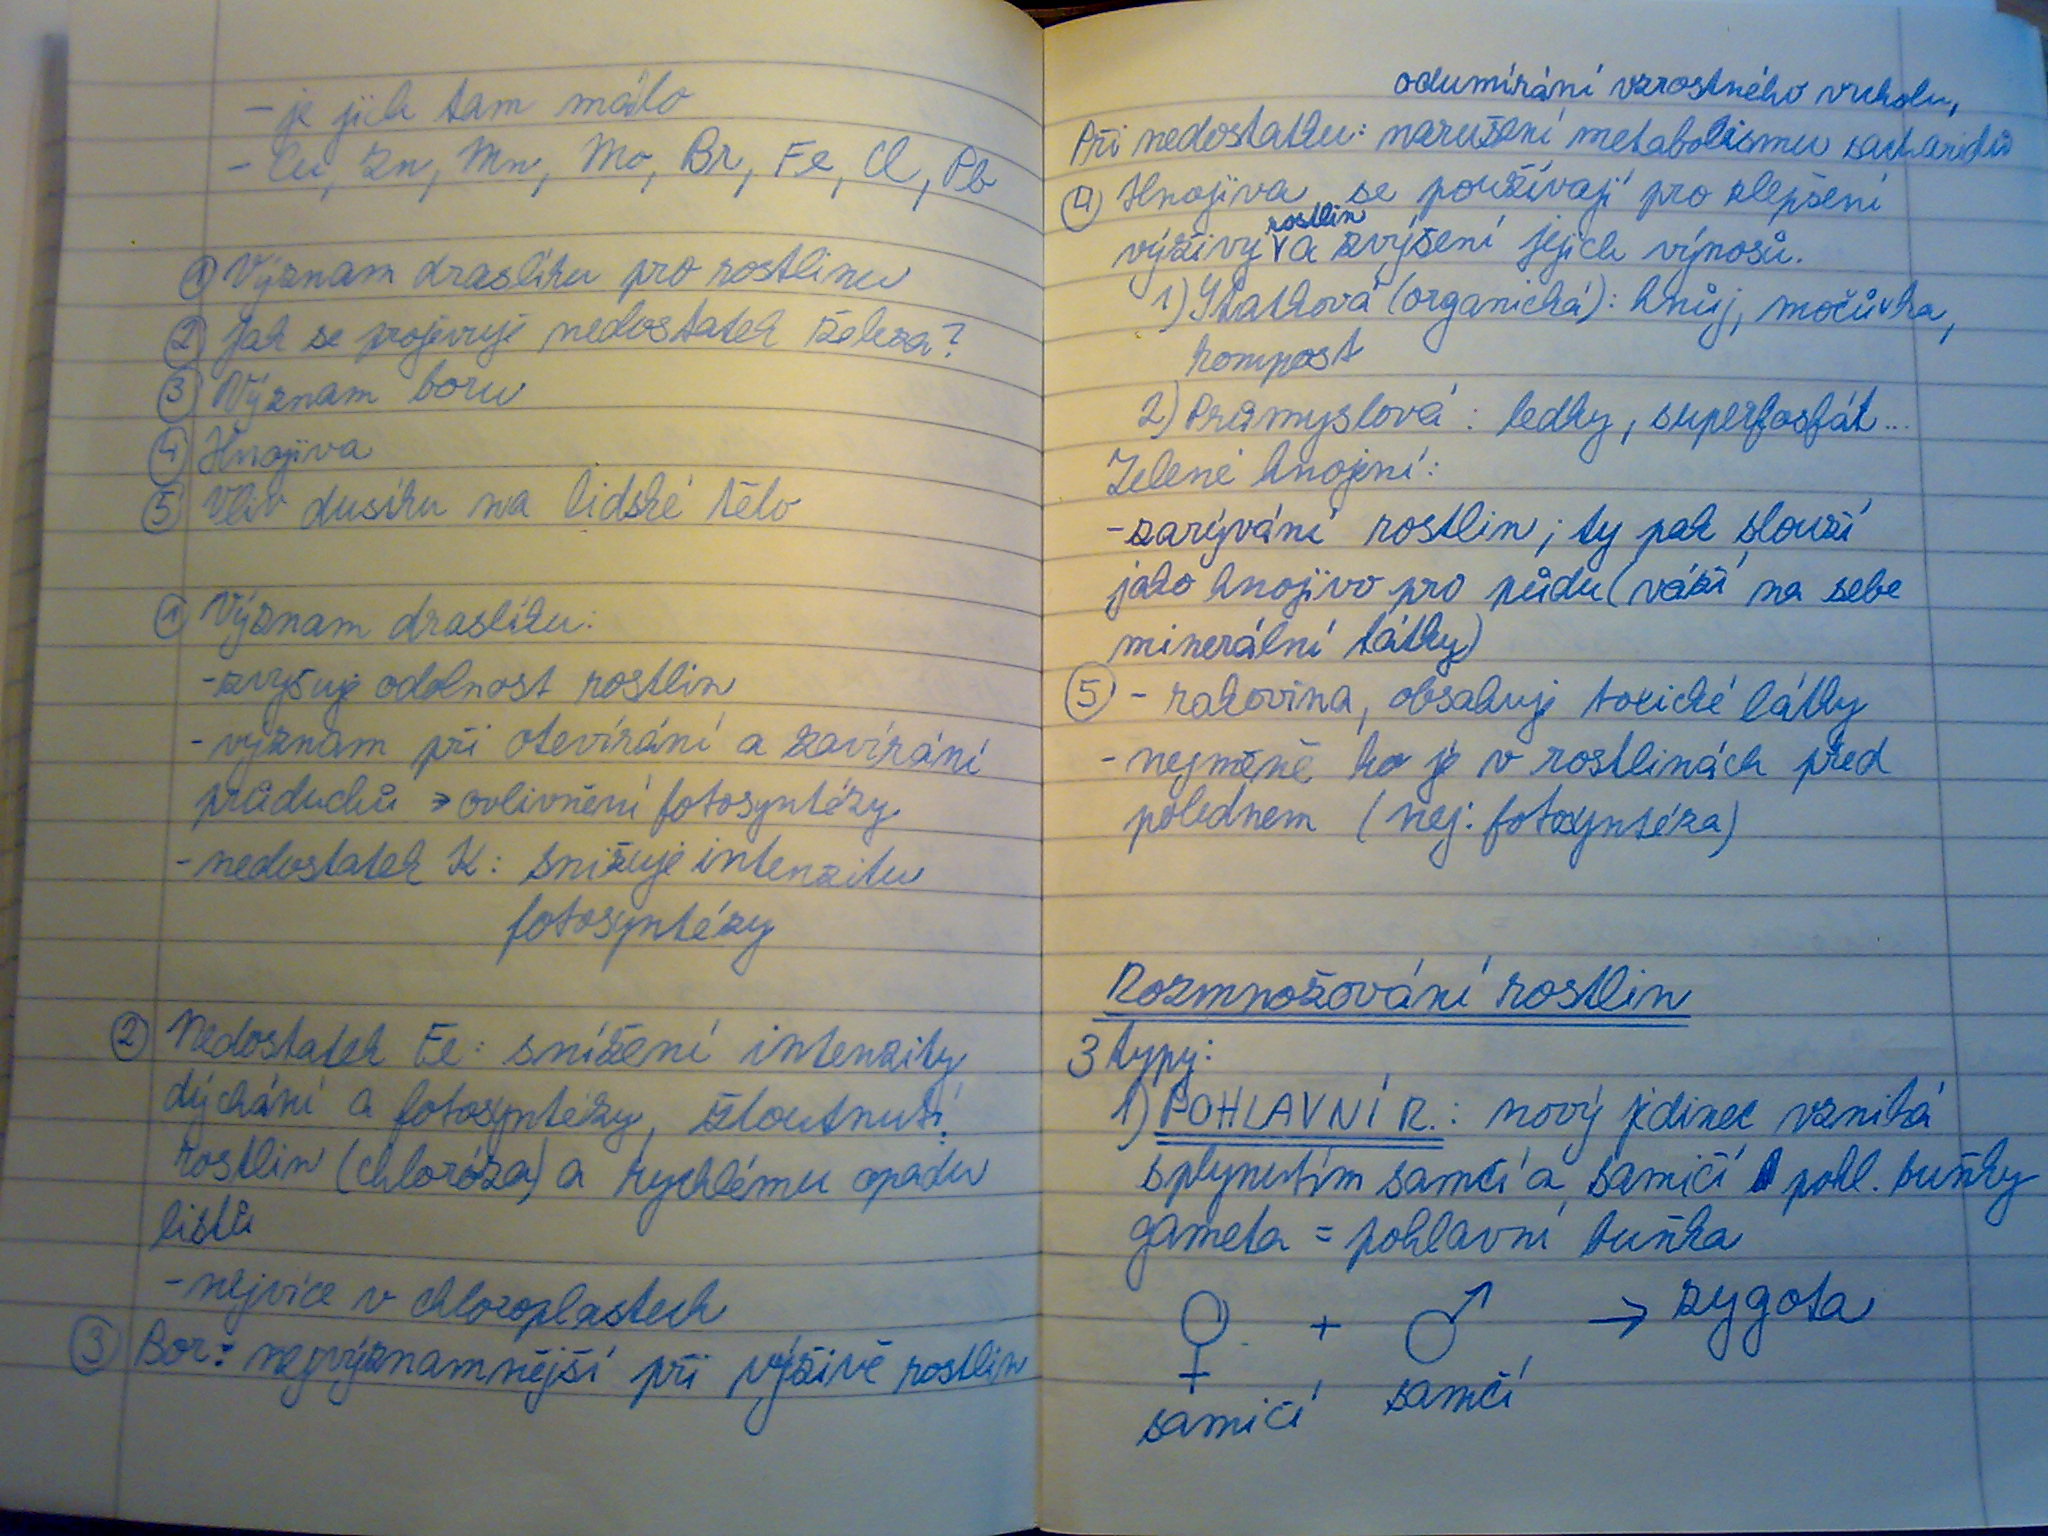 - je jich tam málo
- Cu, Zn, Mn, Mo, Br, Fe, Cl, Pb
① Význam draslíku pro rostlinu
② Jak se projevuje nedostatek železa?
③ Význam boru
④ Hnojiva
⑤ Vliv dusíku na lidské tělo
① Význam draslíku:
- zvyšuje odolnost rostlin
- význam při otevírání a zavírání
průduchů → ovlivnění fotosyntézy
- nedostatek K: snižuje intenzitu
fotosyntézy
② Nedostatek Fe: snížení intenzity
dýchání a fotosyntézy, žloutnutí
rostlin (chloróza) a rychlému opadu
listů
- nejvíce v chloroplastech
③ Bor: nejvýznamnější při výživě rostlin
odumírání vzrostného vrcholu,
Při nedostatku: narušení metabolismu sacharidů
④ Hnojiva se používají pro zlepšení
výživy rostlin a zvýšení jejich výnosů.
1) Statková (organická): hnůj, močůvka,
kompost
2) Průmyslová: ledky, superfosfát...
Zelené hnojení:
- zarývání rostlin; ty pak slouží
jako hnojivo pro půdu (váží na sebe
minerální látky)
⑤ - rakovina, obsahuje toxické látky
- nejméně ho je v rostlinách před
polednem (nej. fotosyntéza)
Rozmnožování rostlin
3 typy:
1) POHLAVNÍ R.: nový jedinec vzniká
splynutím samčí a samičí pohl. buňky
gameta = pohlavní buňka
♀ + ♂ → zygota
samičí samčí